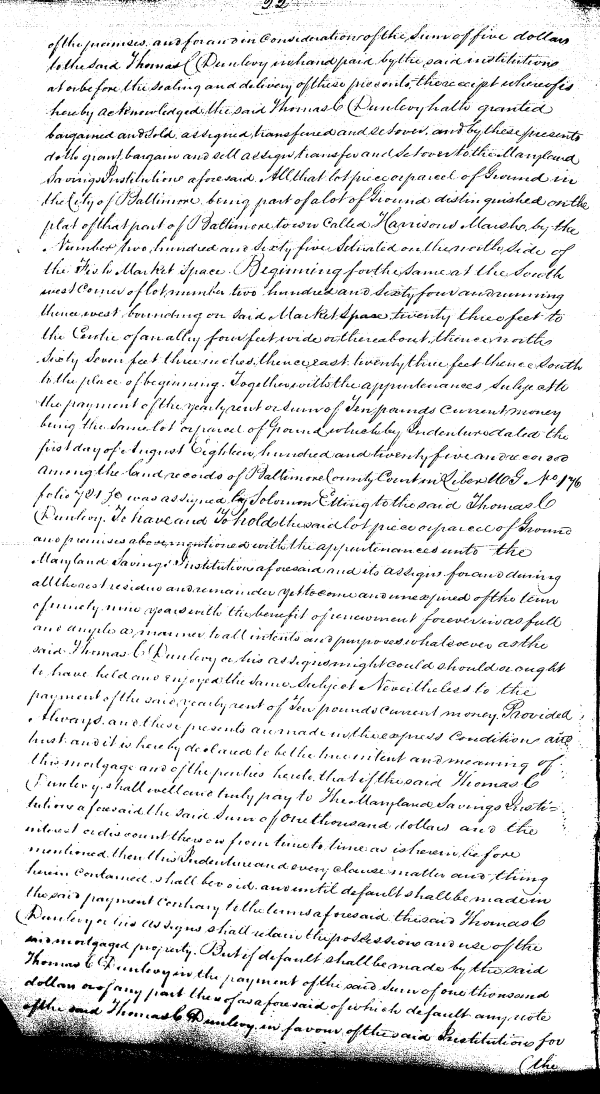 22
of the premises and for and in Consideration of the Sum of five dollars
to the said Thomas C Dunlevy in hand paid by the said institution
at or before the sealing and delivery of these presents, the receipt whereof is
hereby acknowledged, the said Thomas C Dunlevy hath granted
bargained and Sold, assigned, transferred and set over, and by these presents
doth grant, bargain and sell assign, transfer and Set over to the Maryland
Savings Institution aforesaid. All that lot piece or parcel of Ground in
the City of Baltimore being part of a lot of Ground distinguished on the
plat of that part of Baltimore town Called Harrisons Marsh, by the
Number two hundred and Sixty five Situated on the north side of
the Fish Market Space. Beginning for the Same at the South
west Corner of lot, number two hundred and sixty four and running
thence west bounding on said Market Space twenty three feet to
the Centre of an ally four feet wide or thereabout, thence north
Sixty Seven feet three inches, thence east twenty three feet thence South
to the place of beginning. Together with the appurtenances, Subject to
the payment of the yearly rent or sum of Ten pounds current money
being the Same lot or parcel of Ground which by Indenture dated the
first day of August Eighteen hundred and twenty five and recorded
among the land records of Baltimore County Court in Liber WG No 176
folio 781 &c was assigned by Solomon Etting to the said Thomas C
Dunlevy. To have and To hold the said lot piece or parcel of Ground
and premises above mentioned with the appurtenances unto the
Maryland Savings Institution aforesaid and its assigns for and during
all the rest residue and remainder yet to come and unexpired of the term
of ninety nine years with the benefit of renewment forever in as full
and ample a manner to all intents and purposes whatsoever as the
said Thomas C Dunlevy or his assigns might could should or ought
to have held and enjoyed the Same. Subject Nevertheless to the
payment of the said yearly rent of Ten pounds Current money. Provided
Always and these presents are made on the express Condition and
trust and it is hereby declared to be the true intent and meaning of
this mortgage and of the parties hereto, that if the said Thomas C
Dunlevy shall well and truly pay to The Maryland Savings Insti=
tution aforesaid the said sum of one thousand dollars and the
interest or discount thereon from time to time as is herein before
mentioned, then this Indenture and every clause matter and thing
herein Contained shall be void and until default shall be made in
the said payment contrary to the terms aforesaid the said Thomas C
Dunlevy or his assigns shall retain the possession and use of the
said mortgaged property. But if default shall be made by the said
Thomas C Dunlevy in the payment of the said Sum of one thousand
dollars or of any part thereof as aforesaid of which default any note
of the said Thomas C Dunlevy in favour of the said Institution for
(the